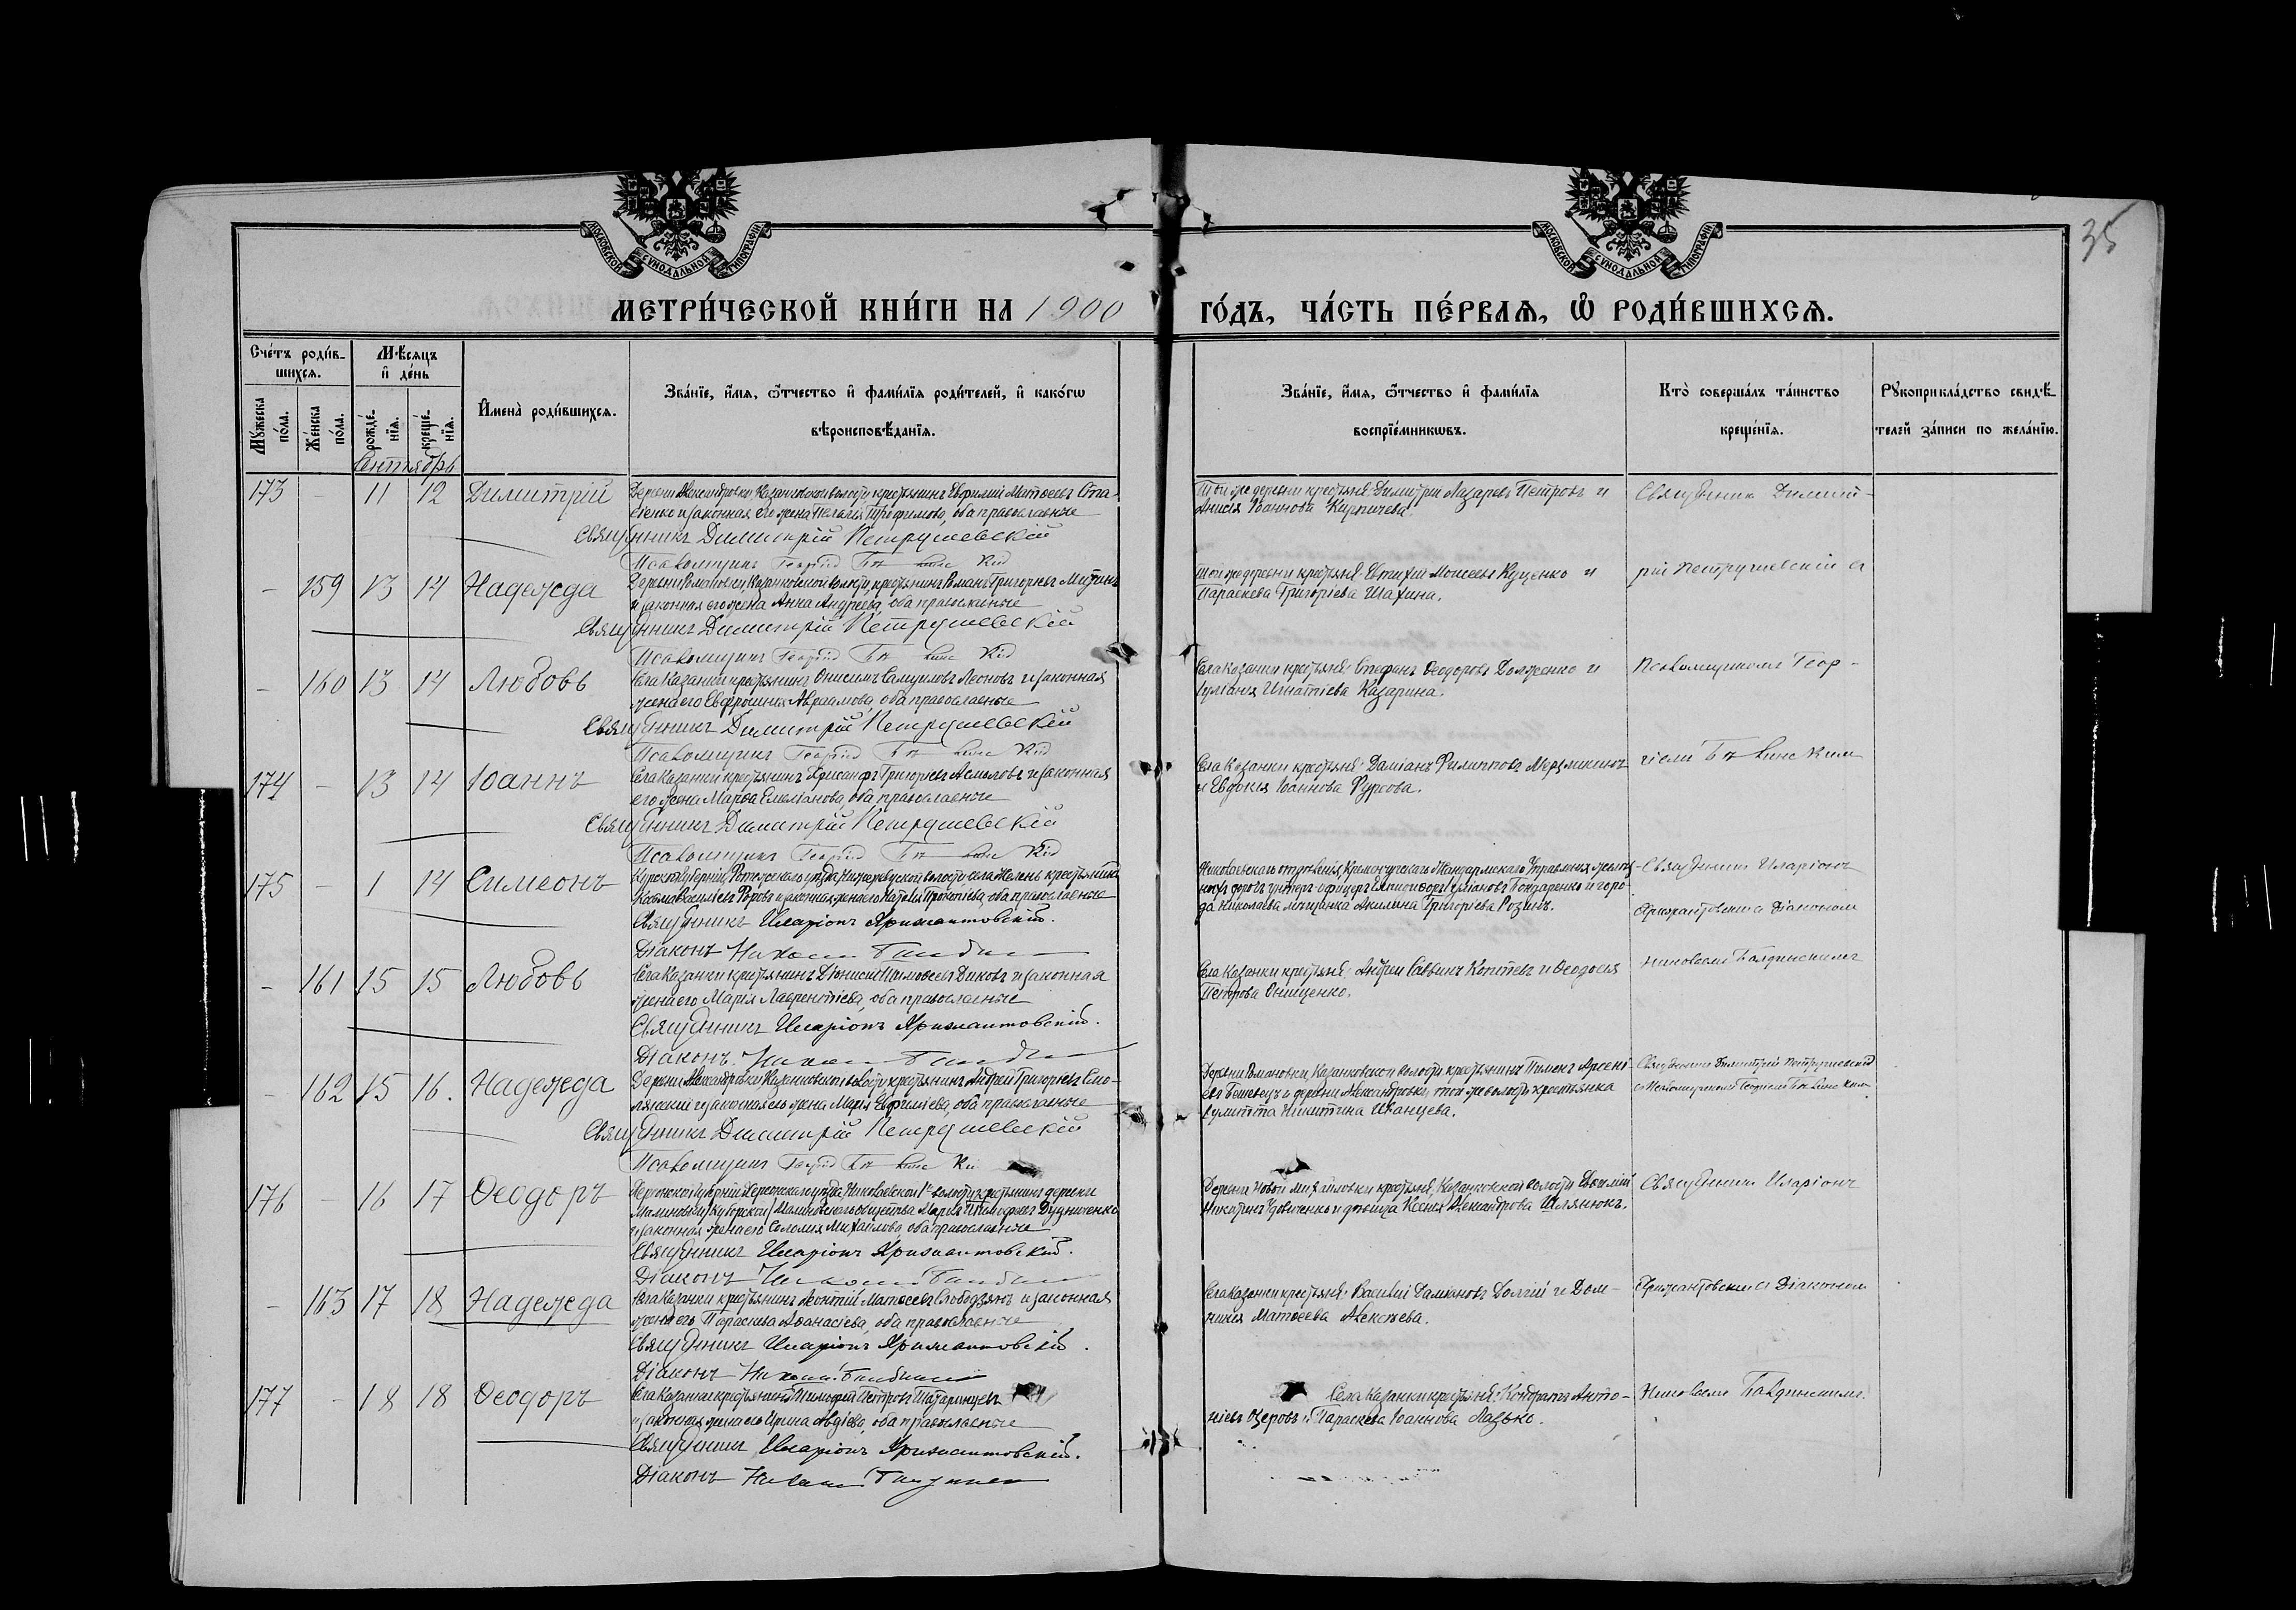 35
МОСКОВСКОЙ СѴНОДАЛЬНОЙ ТИПОГРАФІИ
МОСКОВСКОЙ СѴНОДАЛЬНОЙ ТИПОГРАФІИ
МЕТРИ́ЧЕСКОЙ КНИ́ГИ НА 1900
ГО́ДЪ, ЧА́СТЬ ПЕ́РВАѦ, Ѡ҆ РОДИ́ВШИХСѦ.
Сче́тъ роди́вшихсѧ.
Мꙋ́жеска по́ла.
Же́нска по́ла.
Мѣ́сѧцъ и҆ де́нь
рожде́нїѧ.
креще́нїѧ.
И҆мена̀ роди́вшихсѧ.
Зва́нїе, и҆́мѧ, ѻ҆́тчество и҆ фами́лїѧ роди́телей, и҆ како́гѡ
вѣроисповѣ́данїѧ.
Зва́нїе, и҆́мѧ, ѻ҆́тчество и҆ фами́лїѧ
воспрїе́мникѡвъ.
Кто̀ соверша́лъ та́инство
креще́нїѧ.
Рꙋкоприкла́дство свидѣ́телей за́писи по жела́нїю.
Сентябрь
173 - 11 12 Димитрій
Деревни Александровки, Казанковской волости, крестьянинъ Евфимій Матѳеевъ Ста-
сенко и законная его жена Пелагія Трофимова, оба православные
Священникъ Димитрій Петрушевскій
Псаломщикъ Георгій
Той же деревни крестьяне: Димитрій Лазаревъ Петровъ и
Анисія Іоаннова Кирпичева.
Священникъ Димит-
- 159 13 14 Надежда
Деревни Романовки, Казанковской волости, крестьянинъ Романъ Григорьевъ Митинъ
и законная его жена Анна Андреева, оба православные
Священникъ Димитрій Петрушевскій
Псаломщикъ Георгій
Той же деревни крестьяне: Евтихій Моисеевъ Куценко и
Параскева Григоріева Шахина.
рій Петрушевскій съ
- 160 13 14 Любовь
Села Казанки крестьянинъ Онисимъ Самуиловъ Леоновъ и законная
жена его Евфросинія Авраамова, оба православные
Священникъ Димитрій Петрушевскій
Псаломщикъ Георгій
Села Казанки крестьяне: Стефанъ Ѳеодоровъ Долженко и
Іуліанія Игнатіева Казарина.
Псаломщикомъ Геор-
174 - 13 14 Іоаннъ
Села Казанки крестьянинъ Хрисанфъ Григорьевъ Асмоловъ и законная
его жена Марѳа Емеліанова, оба православные
Священникъ Димитрій Петрушевскій
Псаломщикъ Георгій
Села Казанки крестьяне: Даміанъ Филипповъ и
и Евдокія Іоаннова Фурсова.
гіемъ
175 - 1 14 Симеонъ
Курской губерніи, уѣзда, волости, села крестьянинъ
Косма Васильевъ и законная жена его Наталія Прокопіева, оба православные
Священникъ Иларіонъ Хрисантовскій.
Діаконъ Николай
Николаевскаго отдѣленія, Кременчугскаго Жандармскаго Управленія желѣз-
ныхъ дорогъ унтеръ-офицеръ Іуліановъ Бондаренко и горо-
да Николаева мѣщанка Акилина Григоріева Розинъ.
Священникъ Иларіонъ
Хрисантовскій съ Діакономъ
- 161 15 15 Любовь
Села Казанки крестьянинъ Діонисій Диковъ и законная
жена его Марія Лаврентіева, оба православные
Священникъ Иларіонъ Хрисантовскій.
Діаконъ Николай
Села Казанки крестьяне: Андрей Саввинъ Коптевъ и Ѳеодосія
Петрова Онищенко.
Николаемъ
- 162 15 16. Надежда
Деревни Александровки, Казанковской волости, крестьянинъ Андрей Григорьевъ Смо-
лянскій и законная его жена Марія Евфиміева, оба православные
Священникъ Димитрій Петрушевскій
Псаломщикъ Георгій
Деревни Романовки, Казанковской волости крестьянинъ Пименъ Арсені-
евъ и деревни Александровки, той же волости крестьянка
Іулитта Никитина Иванцева.
Священникъ Димитрій Петрушевскій
съ Псаломщикомъ Георгіемъ
176 - 16 17 Ѳеодоръ
Херсонской губерніи, Херсонскаго уѣзда, Николаевской 1й волости крестьянинъ деревни
Малиновки общества Тимофеевъ Дудниченко
и законная жена его Соломія Михаилова, оба православные
Священникъ Иларіонъ Хрисантовскій.
Діаконъ Николай
Деревни Новой Михайловки крестьяне, Казанковской волости
Никитинъ и дѣвица Ксенія Александрова Шлянюкъ.
Священникъ Иларіонъ
- 163 17 18 Надежда
Села Казанки крестьянинъ Леонтій Матѳеевъ Слободзянъ и законная
жена его Параскева Аѳанасіева, оба православные
Священникъ Иларіонъ Хрисантовскій.
Діаконъ Николай
Села Казанки крестьяне: Василій Даміановъ Долгій и Дом-
никія Матѳеева Алексѣева.
Хрисантовскій съ Діакономъ
177 - 18 18 Ѳеодоръ
Села Казанки крестьянинъ Тимофей Петровъ Татаринцевъ
и законная жена его Ирина Авдіева, оба православные
Священникъ Иларіонъ Хрисантовскій.
Діаконъ Николай
Села Казанки крестьяне: Кондратъ Анто-
ніевъ Озеровъ и Параскева Іоаннова Лазько.
Николаемъ